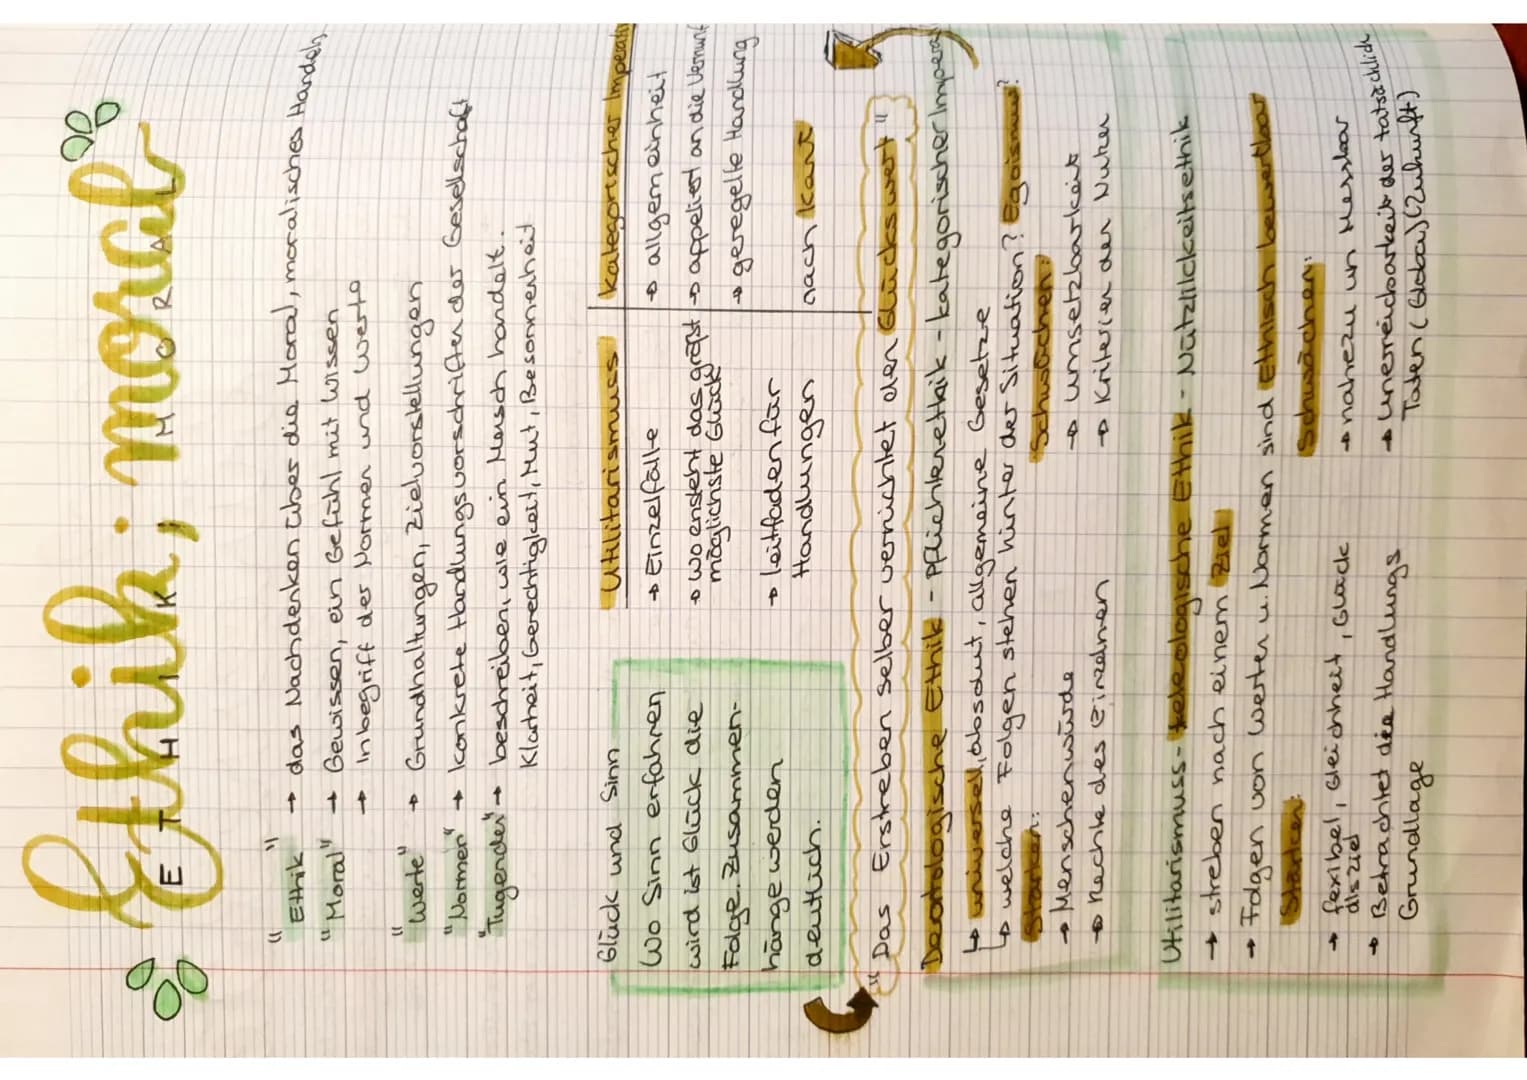 Ethik; moral
ETHIK; MORAL
"Ethik" → das Nachdenken über die Moral, moralisches Handeln
"Moral" → Gewissen, ein Gefühl mit Wissen
→ Inbegriff der Normen und Werte
"Werte" → Grundhaltungen, Zielvorstellungen
"Normen" → konkrete Handlungsvorschriften der Gesellschaft
"Tugenden" → beschreiben, wie ein Mensch handelt.
Klarheit, Gerechtigkeit, Mut, Besonnenheit
Glück und Sinn
Wo Sinn erfahren
wird ist Glück die
Folge. Zusammen-
hänge werden
deutlich.
Utilitarismus
→ Einzelfälle
→ wo ensteht das größt
möglichste Glück
→ Leitfaden für
Handlungen
kategorischer Imperati
→ allgemeinheit
→ appeliert an die Vernunf
→ geregelte Handlung
nach Kant
"Das Erstreben selber vernichtet den Glückswert"
Deontologische Ethik - Pflichtenethik - kategorischer Impera
↳ universell, absolut, allgemeine Gesetze
↳ welche Folgen stehen hinter der Situation? Egoismus?
Stärken:
→ Menschenwürde
→ Rechte des Einzelnen
Schwächen:
→ Umsetzbarkeit
→ Kriterien der Nutzer
Utilitarismuss - teleologische Ethik - Nützlickeitsethik
→ streben nach einem Ziel
→ Folgen von Werten u. Normen sind Ethisch bewertbar
Stärken:
→ flexibel, Gleichheit, Glück
als Ziel
→ Betrachtet die Handlungs
Grundlage
Schwächen:
→ nahezu un Messbar
→ Unerreichbarkeit der tatsächlich
Taten (Global) (Zukunft)